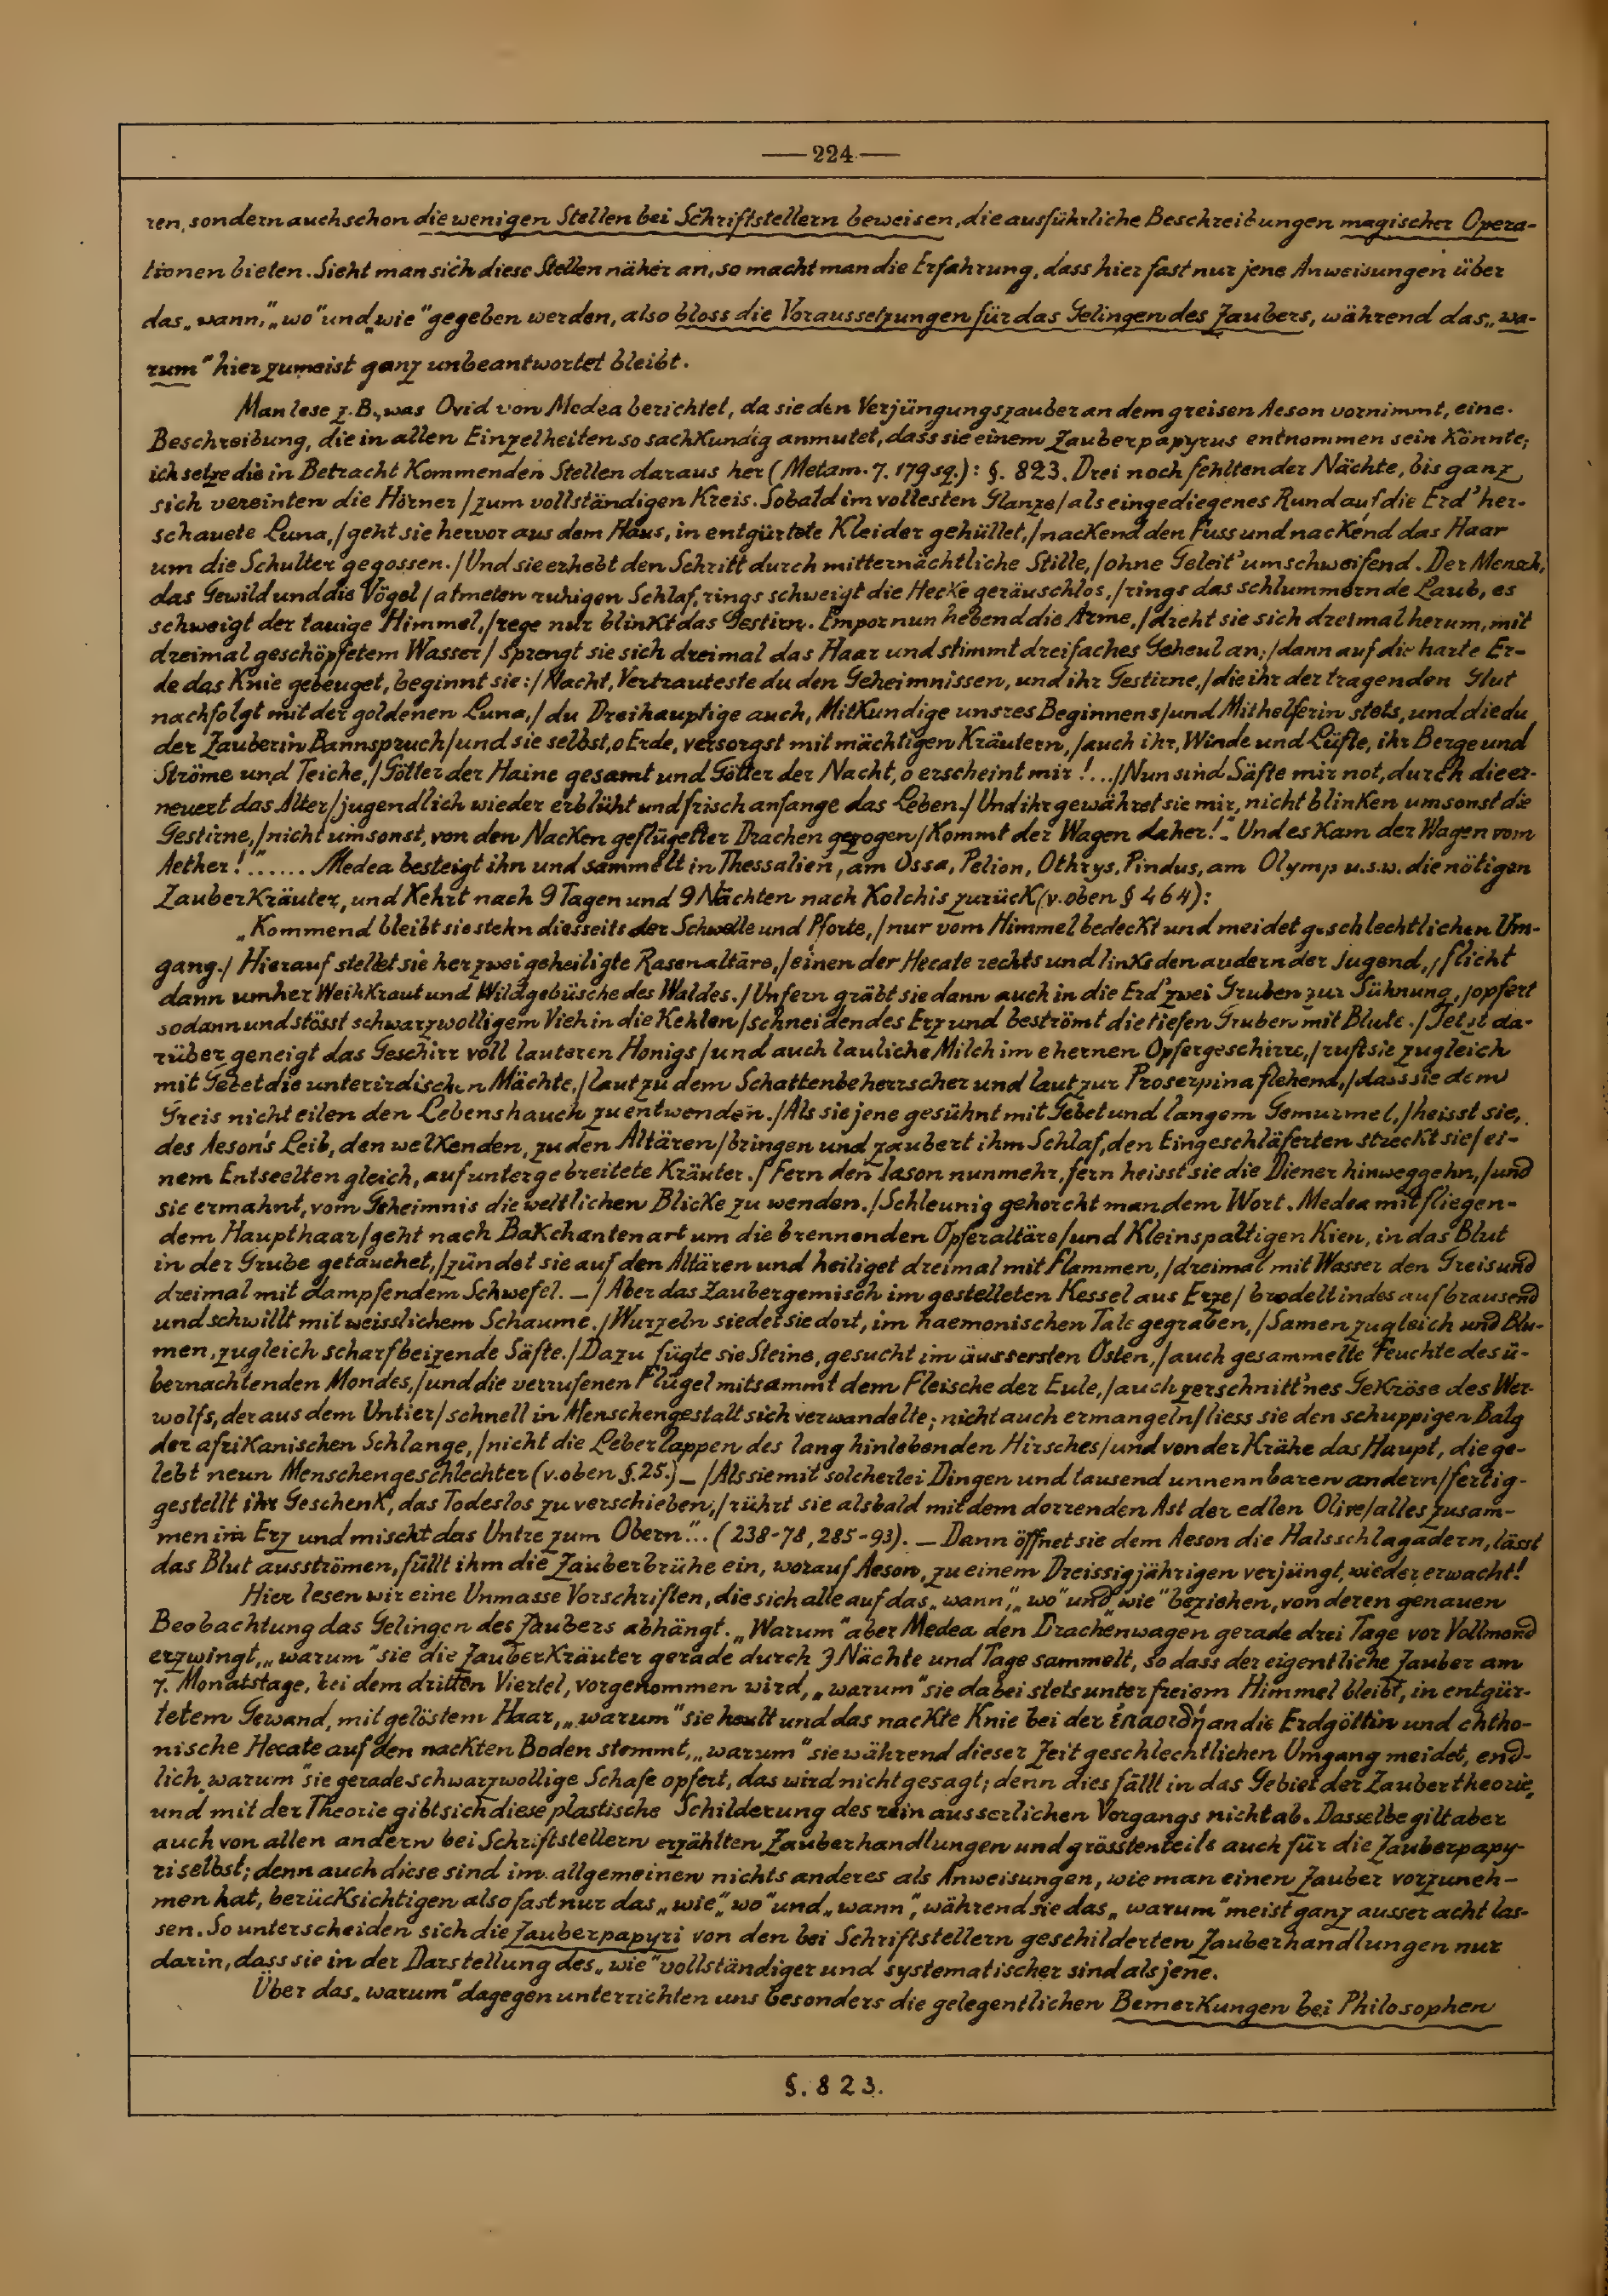 — 224 —
ren, sondern auch schon die wenigen Stellen bei Schriftstellern beweisen, die ausführliche Beschreibungen magischer Opera-
tionen bieten. Sieht man sich diese Stellen näher an, so macht man die Erfahrung, dass hier fast nur jene Anweisungen über
das „wann," „wo" und „wie" gegeben werden, also bloss die Voraussetzungen für das Gelingen des Zaubers, während das „wa-
rum" hier zumeist ganz unbeantwortet bleibt.
Man lese z.B., was Ovid von Medea berichtet, da sie den Verjüngungszauber an dem greisen Aeson vornimmt, eine
Beschreibung, die in allen Einzelheiten so sachkundig anmutet, dass sie einem Zauberpapyrus entnommen sein könnte;
ich setze die in Betracht kommenden Stellen daraus her (Metam. 7. 179 sq.): §. 823. Drei noch fehlten der Nächte, bis ganz
sich vereinten die Hörner / zum vollständigen Kreis. Sobald im vollesten Glanze / als eingediegenes Rund auf die Erd' her-
schauete Luna, / geht sie hervor aus dem Haus, in entgürtete Kleider gehüllet, / nackend den Fuss und nackend das Haar
um die Schulter gegossen. / Und sie erhebt den Schritt durch mitternächtliche Stille, / ohne Geleit' umschweifend. Der Mensch,
das Gewild und die Vögel / atmeten ruhigen Schlaf, rings schweigt die Hecke geräuschlos, / rings das schlummernde Laub, es
schweigt der tauige Himmel, / rege nur blinkt das Gestirn. Empor nun hebend die Arme, / dreht sie sich dreimal herum, mit
dreimal geschöpfetem Wasser / sprengt sie sich dreimal das Haar und stimmt dreifaches Geheul an; / dann auf die harte Er-
de das Knie gebeuget, beginnt sie: / Nacht, Vertrauteste du den Geheimnissen, und ihr Gestirne, / die ihr der tragenden Glut
nachfolgt mit der goldenen Luna, / du Dreihauptige auch, Mitkundige unsres Beginnens / und Mithelferin stets, und die du
der Zauberin Bannspruch / und sie selbst, o Erde, versorgst mit mächtigen Kräutern, / auch ihr, Winde und Lüfte, ihr Berge und
Ströme und Teiche, / Götter der Haine gesamt und Götter der Nacht, o erscheint mir!... / Nun sind Säfte mir not, durch die er-
neuert das Alter / jugendlich wieder erblüht und frisch anfange das Leben. / Und ihr gewähret sie mir, nicht blinken umsonst die
Gestirne, / nicht umsonst, von den Nacken geflügelter Drachen gezogen / kommt der Wagen daher!" Und es kam der Wagen vom
Aether!"...... Medea besteigt ihn und sammelt in Thessalien, am Ossa, Pelion, Othrys, Pindus, am Olymp u.s.w. die nötigen
Zauberkräuter, und kehrt nach 9 Tagen und 9 Nächten nach Kolchis zurück (v. oben § 464):
„Kommend bleibt sie stehn diesseits der Schwelle und Pforte, / nur vom Himmel bedeckt und meidet geschlechtlichen Um-
gang. / Hierauf stellet sie her zwei geheiligte Rasenaltäre, / einen der Hecate rechts und links den andern der Jugend, / flicht
dann umher Weihkraut und Wildgebüsche des Waldes. / Unfern gräbt sie dann auch in die Erd' zwei Gruben zur Sühnung, / opfert
sodann und stösst schwarzwolligem Vieh in die Kehlen / schneidendes Erz und beströmt die tiefen Gruben mit Blute. / Jetzt da-
rüber geneigt das Geschirr voll lauteren Honigs / und auch lauliche Milch im ehernen Opfergeschirre, / ruft sie zugleich
mit Gebet die unterirdischen Mächte, / laut zu dem Schattenbeherrscher und laut zur Proserpina flehend, / dass sie dem
Greis nicht eilen den Lebenshauch zu entwenden. / Als sie jene gesühnt mit Gebet und langem Gemurmel, / heisst sie,
des Aeson's Leib, den welkenden, zu den Altären / bringen und zaubert ihm Schlaf, den Eingeschläferten streckt sie / ei-
nem Entseelten gleich, auf untergebreitete Kräuter. / Fern den Iason nunmehr, fern heisst sie die Diener hinweggehn, / und
sie ermahnt, vom Geheimnis die weltlichen Blicke zu wenden. / Schleunig gehorcht man dem Wort. Medea mit fliegen-
dem Haupthaar / geht nach Bakchantenart um die brennenden Opferaltäre / und kleinspaltigen Kien, in das Blut
in der Grube getauchet, / zündet sie auf den Altären und heiliget dreimal mit Flammen, / dreimal mit Wasser den Greis und
dreimal mit dampfendem Schwefel. — / Aber das Zaubergemisch im gestelleten Kessel aus Erze / brodelt indes aufbrausend
und schwillt mit weisslichem Schaume. / Wurzeln siedet sie dort, im haemonischen Tale gegraben, / Samen zugleich und Blu-
men, zugleich scharfbeizende Säfte. / Dazu fügte sie Steine, gesucht im äussersten Osten, / auch gesammelte Feuchte des ü-
bernachtenden Mondes, / und die verrufenen Flügel mitsammt dem Fleische der Eule, / auch zerschnitt'nes Gekröse des Wer-
wolfs, der aus dem Untier / schnell in Menschengestalt sich verwandelte; nicht auch ermangeln / liess sie den schuppigen Balg
der afrikanischen Schlange, / nicht die Leberlappen des lang hinlebenden Hirsches / und von der Krähe das Haupt, die ge-
lebt neun Menschengeschlechter (v. oben §. 25.) — / Als sie mit solcherlei Dingen und tausend unnennbaren andern / fertig-
gestellt ihr Geschenk, das Todeslos zu verschieben, / rührt sie alsbald mit dem dorrenden Ast der edlen Olive / alles zusam-
men im Erz und mischt das Untre zum Obern"... (238-78, 285-93). — Dann öffnet sie dem Aeson die Halsschlagadern, lässt
das Blut ausströmen, füllt ihm die Zauberbrühe ein, worauf Aeson, zu einem Dreissigjährigen verjüngt, wieder erwacht!
Hier lesen wir eine Unmasse Vorschriften, die sich alle auf das „wann", „wo" und „wie" beziehen, von deren genauen
Beobachtung das Gelingen des Zaubers abhängt. „Warum" aber Medea den Drachenwagen gerade drei Tage vor Vollmond
erzwingt, „warum" sie die Zauberkräuter gerade durch 9 Nächte und Tage sammelt, so dass der eigentliche Zauber am
7. Monatstage, bei dem dritten Viertel, vorgenommen wird, „warum" sie dabei stets unter freiem Himmel bleibt, in entgür-
tetem Gewand, mit gelöstem Haar, „warum" sie heult und das nackte Knie bei der ἐπαοιδή an die Erdgöttin und chtho-
nische Hecate auf den nackten Boden stemmt, „warum" sie während dieser Zeit geschlechtlichen Umgang meidet, end-
lich „warum" sie gerade schwarzwollige Schafe opfert, das wird nicht gesagt; denn dies fällt in das Gebiet der Zaubertheorie,
und mit der Theorie gibt sich diese plastische Schilderung des rein ausserlichen Vorgangs nicht ab. Dasselbe gilt aber
auch von allen andern bei Schriftstellern erzählten Zauberhandlungen und grösstenteils auch für die Zauberpapy-
ri selbst; denn auch diese sind im allgemeinen nichts anderes als Anweisungen, wie man einen Zauber vorzuneh-
men hat, berücksichtigen also fast nur das „wie", „wo" und „wann", während sie das „warum" meist ganz ausser acht las-
sen. So unterscheiden sich die Zauberpapyri von den bei Schriftstellern geschilderten Zauberhandlungen nur
darin, dass sie in der Darstellung des „wie" vollständiger und systematischer sind als jene.
Über das „warum" dagegen unterrichten uns besonders die gelegentlichen Bemerkungen bei Philosophen
§. 823.